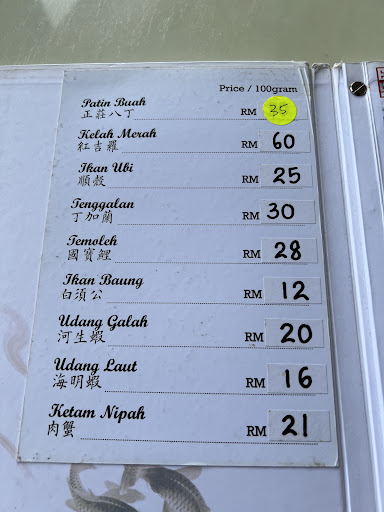 Price / 100gram
Patin Buah
正莊八丁 RM 35
Kelah Merah
紅吉羅 RM 60
Ikan Ubi
順殼 RM 25
Tenggalan
丁加蘭 RM 30
Temoleh
國寶鯉 RM 28
Ikan Baung
白須公 RM 12
Udang Galah
河生蝦 RM 20
Udang Laut
海明蝦 RM 16
Ketam Nipah
肉蟹 RM 21